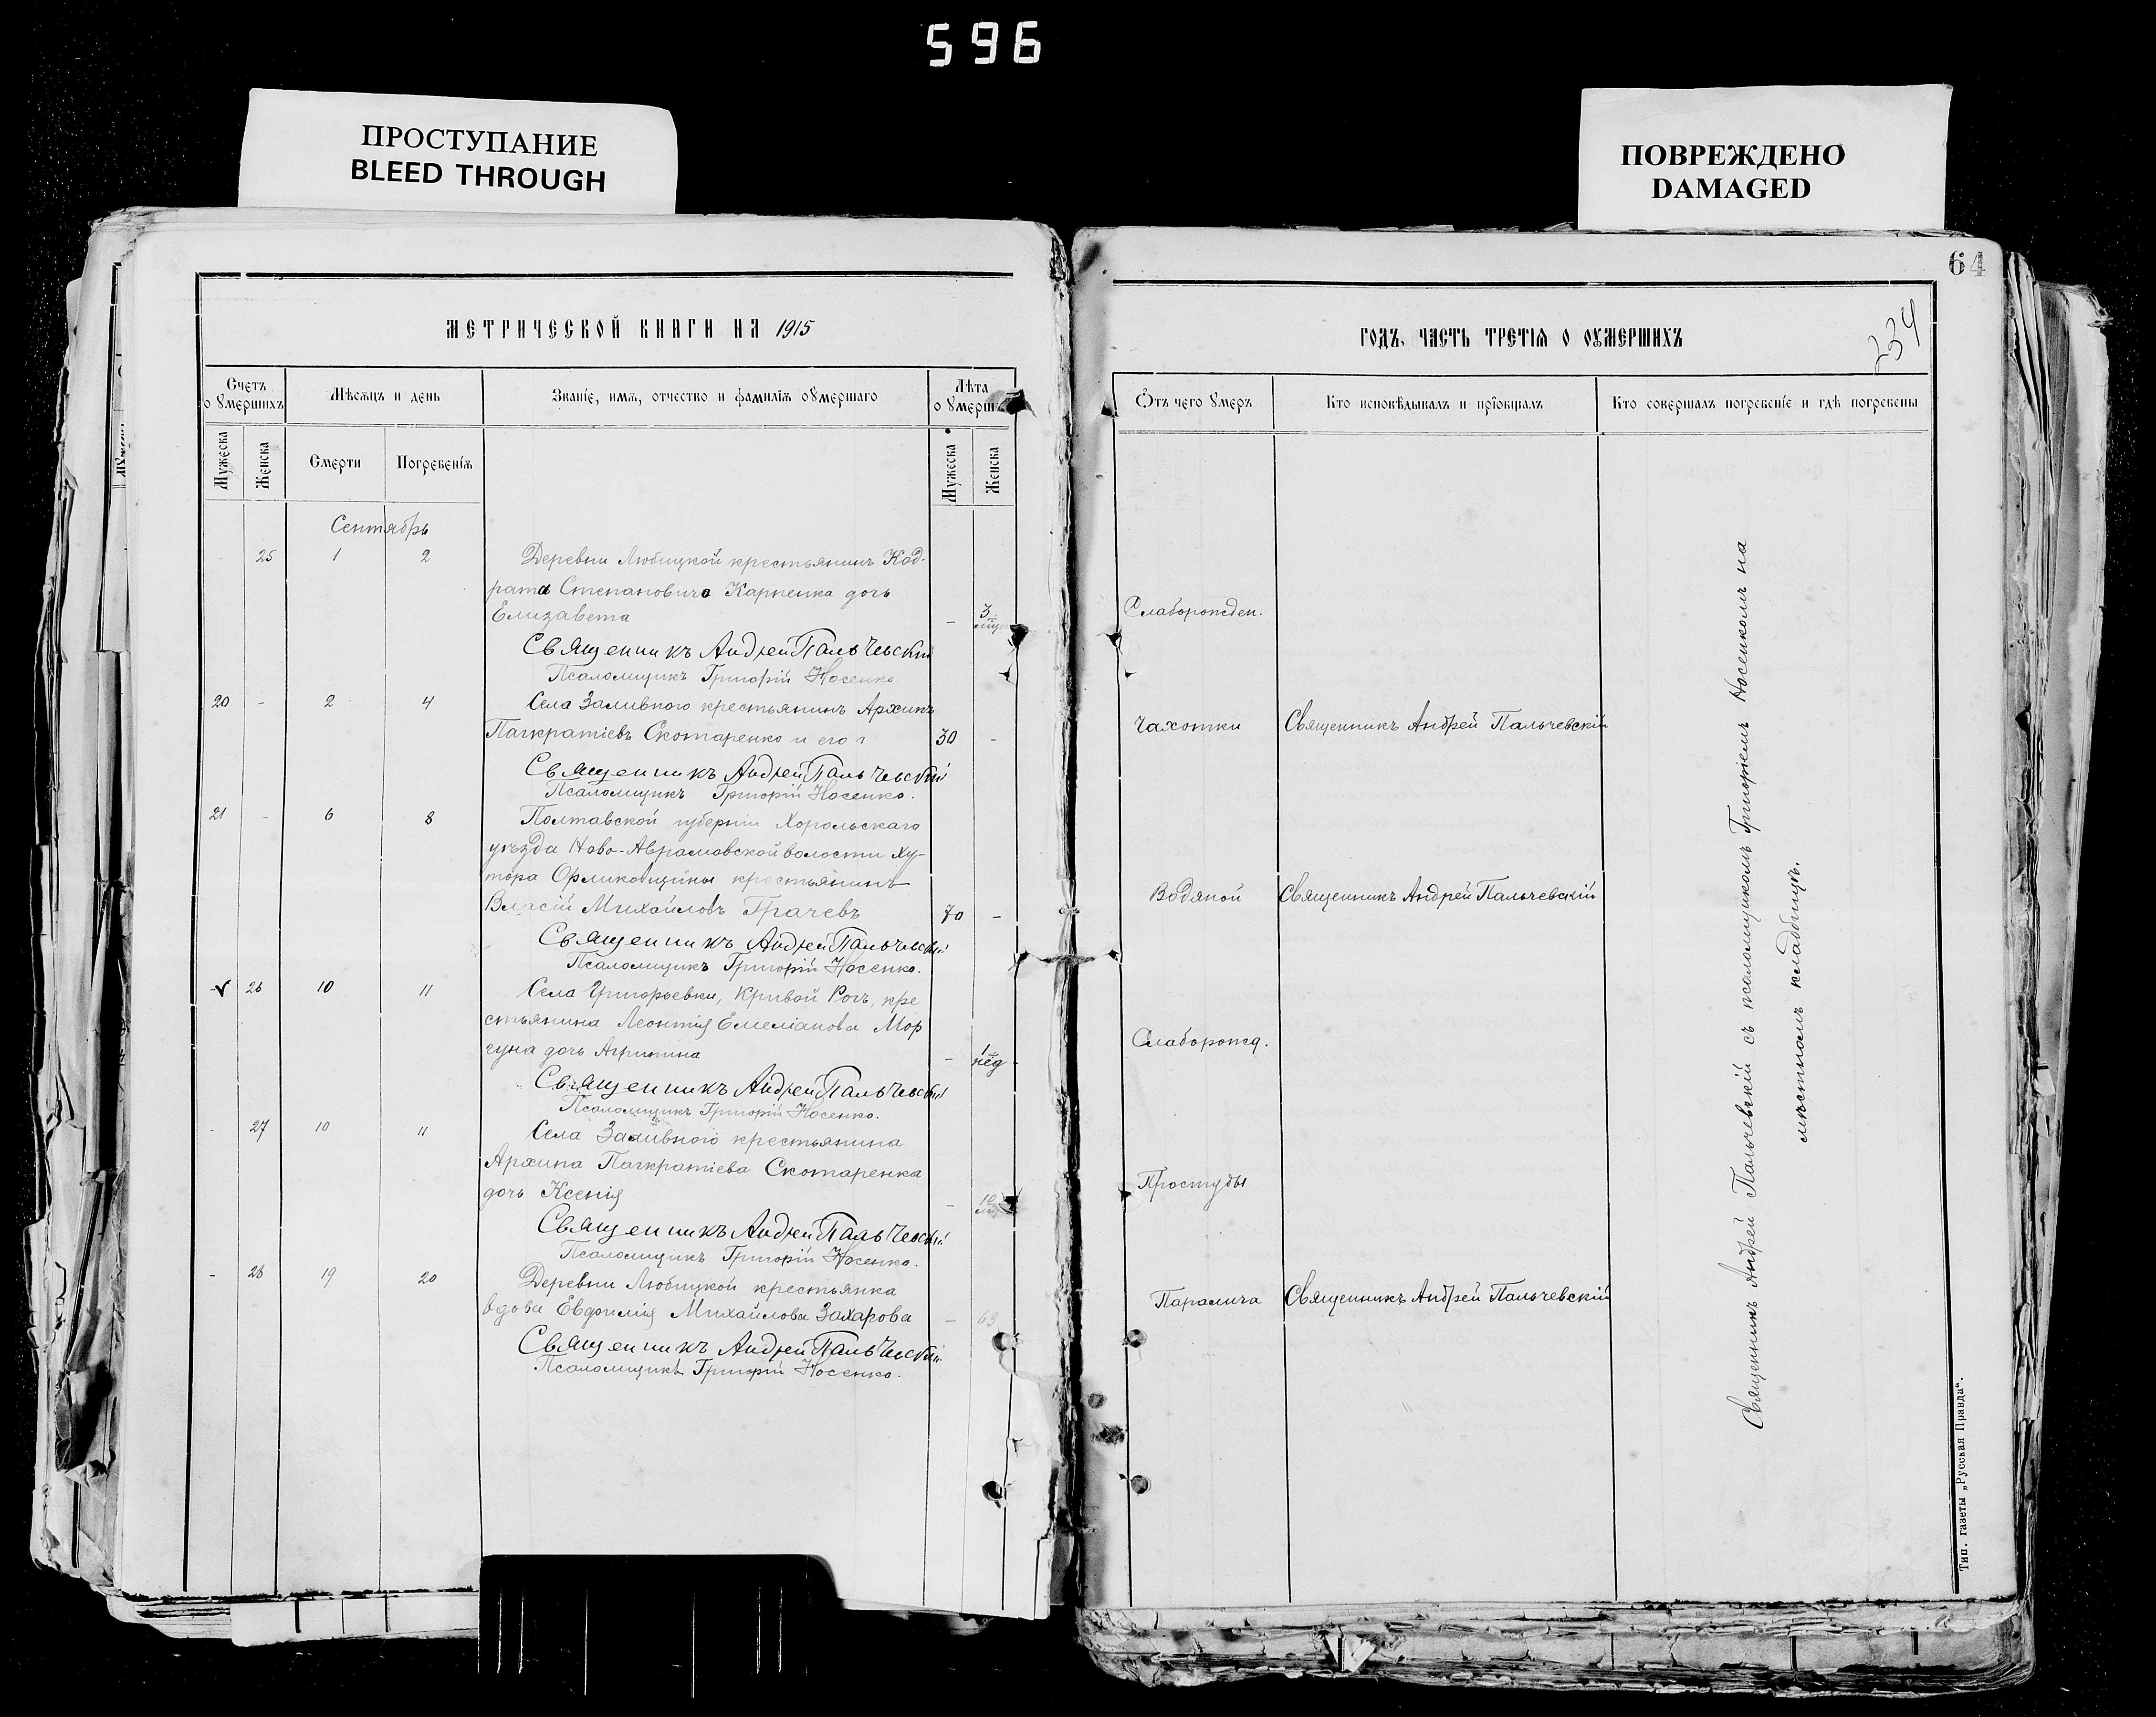 596
ПРОСТУПАНИЕ
BLEED THROUGH
ПОВРЕЖДЕНО
DAMAGED
МЕТРИЧЕСКОЙ КНИГИ НА 1915
Счетъ о умершихъ
Мѣсяцъ и день
Званіе, имя, отчество и фамилія умершаго
Лѣта о умерш
Мужеска
Женска
Смерти
Погребенія
Мужеска
Женска
Сентябрь
- 25 1 2 Деревни Любицкой крестьянинъ Код-
рата Степановича Карпенка дочь
Елизавета - 3
Священникъ Андрей Пальчевскій
Псаломщикъ Григорій Носенко.
20 - 2 4 Села Заливного крестьянинъ Архипъ
Панкратіевъ Скотаренко и его 30 -
Священникъ Андрей Пальчевскій
Псаломщикъ Григорій Носенко.
21 - 6 8 Полтавской губерніи Хорольскаго
уѣзда Ново-Аврамовской волости Ху-
тора Орликовщины крестьянинъ
Власій Михайловъ Грачевъ 70 -
Священникъ Андрей Пальчевскій
Псаломщикъ Григорій Носенко.
26 10 11 Села Григорьевки, Кривой Рогъ, кре
стьянина Леонтія Емеліанова Мор
гуна дочь Агрипина - 1 нед
Священникъ Андрей Пальчевскій
Псаломщикъ Григорій Носенко.
- 27 10 11 Села Заливного крестьянина
Архипа Панкратіева Скотаренка
дочь Ксенія - 10
Священникъ Андрей Пальчевскій
Псаломщикъ Григорій Носенко.
- 28 19 20 Деревни Любицкой крестьянка
вдова Евдокимія Михайлова Захарова - 63
Священникъ Андрей Пальчевскій
Псаломщикъ Григорій Носенко.
64
234
ГОДЪ, ЧАСТЬ ТРЕТІЯ О УМЕРШИХЪ
Отъ чего умеръ
Кто исповѣдывалъ и пріобщалъ
Кто совершалъ погребеніе и гдѣ погребены
Слаборожден.
Чахотки Священникъ Андрей Пальчевскій
Водяной Священникъ Андрей Пальчевскій
Слаборожд.
Простуды
Паралича Священникъ Андрей Пальчевскій
Священникъ Андрей Пальчевскій съ псаломщикомъ Григоріемъ Носенкомъ на
мѣстномъ кладбищѣ.
Тип. газеты „Русская Правда“.